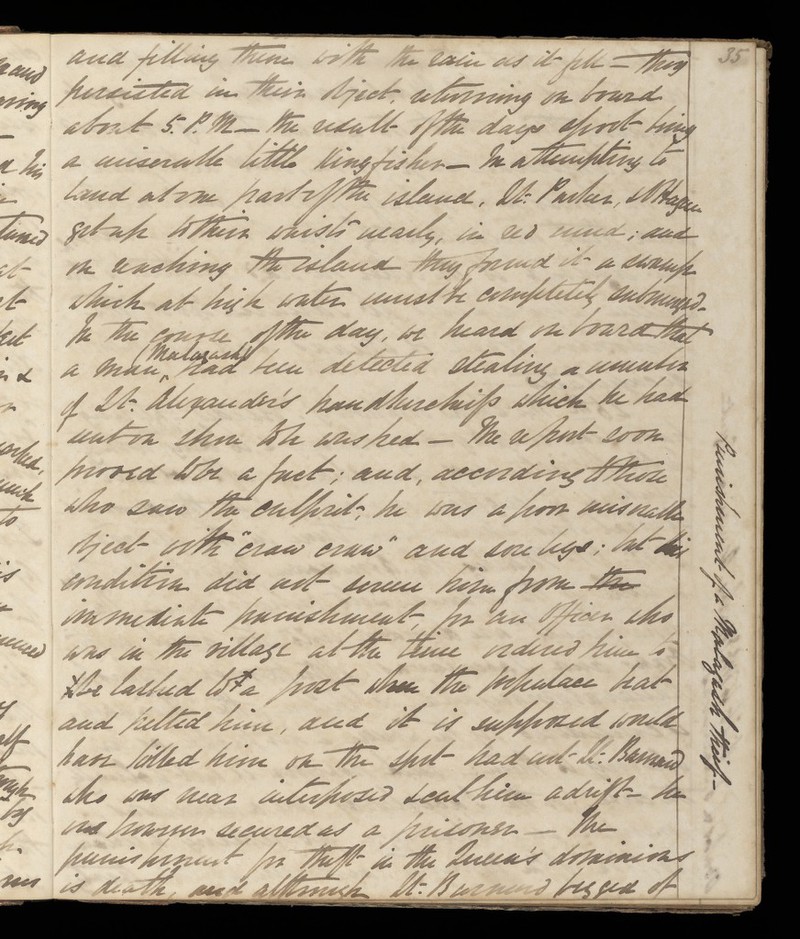 35
and filling them with the rain as it fell – they
persisted in their object, returning on board
about 5. P.M – the result of the days sport being
a miserable little Kingfisher – In attempting to
land at one part of the island, Lt. Parker,
got up to their waists nearly, in red mud; and
on reaching the island they found it a swamp
which at high water must be completely submerged.
In the course of the day, we heard on board that
(Malagash)
a man had been detected stealing a number
of Lt. Alexander's handkerchiefs which he had
sent on shore to be washed – The report soon
proved to be a fact; and, according to those
who saw the culprit, he was a poor miserable
object with "craw craw" and sore legs; but his
condition did not screen him from the
immediate punishment for an Officer who
was in the village at the time ordered him to
be lashed to a post when the populace beat
and pelted him, and it is supposed would
have killed him on the spot had not Lt. Barnard
who was near interposed & cut him adrift – he
was however secured as a prisoner – The
punishment for theft in the Queen's dominions
is death, and although Lt. Barnard begged of
Punishment of a Malagash thief –